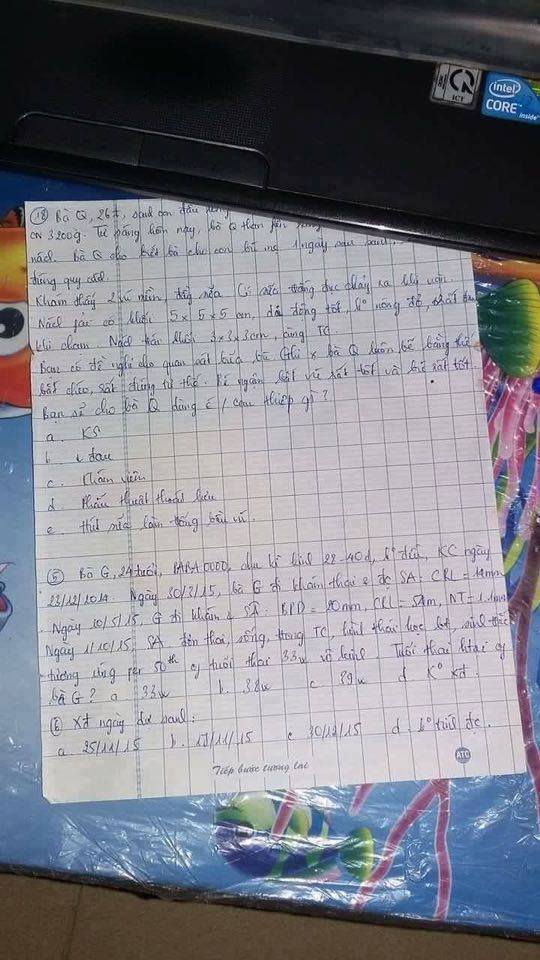 intel
CORE
inside
ICT
(18) Bà Q, 26t, sanh con đầu lòng
CN 3200g. Từ sáng hôm nay, bà Q than
Bà Q cho biết bà cho con bú mẹ 1 ngày sau sanh,
đúng quy cách.
Khám thấy 2 vú mềm, đầy sữa. Có sữa trắng đục chảy ra khi
Nách phải có khối 5 x 5 x 5 cm, di động tốt, k° nóng đỏ,
khi chạm. Nách trái khối 3 x 3 x 3cm, cùng TC.
Bạn có đề nghị cho quan sát bữa bú. Ghi x bà Q luôn bế bằng thế
bắt chéo, sát đúng tư thế. Bé ngậm bắt vú rất tốt và bú rất tốt.
Bạn sẽ cho bà Q dùng / can thiệp gì?
a. KS
b. ↓ đau
c. Kháng viêm
d. Phẫu thuật thoát lưu
e. Hút sữa làm trống bầu vú.
(5) Bà G, 24 tuổi, PARA 0000, chu kì kinh 28-40d, k° đều, KC ngày
23/12/2014. Ngày 30/3/15, bà G đi khám thai & đc SA: CRL = 14mm
Ngày 10/5/15, G đi khám & SA: BPD = 20mm, CRL = 54m, NT = 1.1mm
Ngày 1/10/15 SA đơn thai, sống, trong TC, hình thái học bt, sinh trắc
tương ứng per 50th of tuổi thai 33w vô kinh. Tuổi thai
bà G? a 33w b. 38w c 39w d K° xđ.
(6) Xđ ngày dự sanh:
a. 25/11/15 b. 17/11/15 c 30/12/15 d. k° tính đc.
Tiếp bước tương lai
ATC